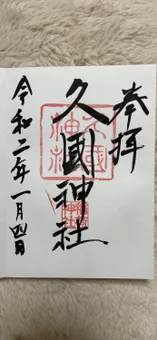 奉拝
久國神社
令和二年一月四日